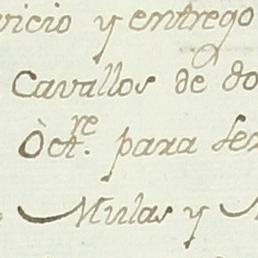 vicio y entrego
Cavallos de do
Oct.re para ser
Mulas y